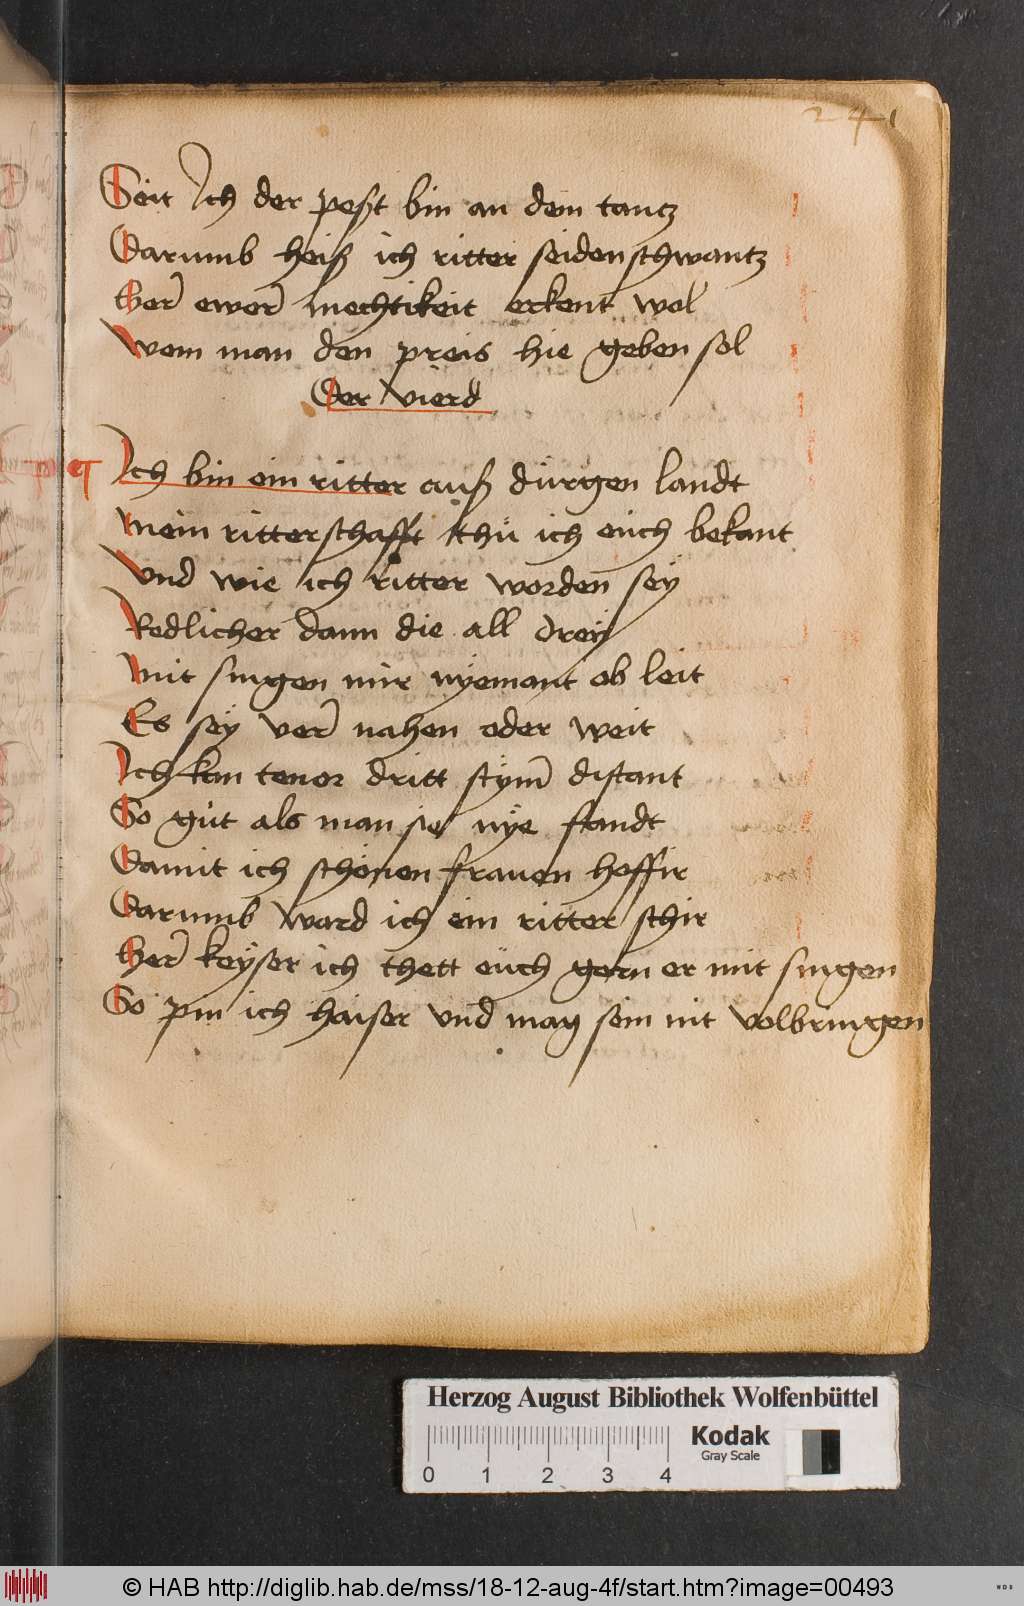 241
Seit Ich der peßt bin an dem tantz
Darumb heiß ich ritter seidenschwantz
Her ewer mechtikeit erkent wol
Wem man den preis hie geben sol
Der vierd
Ich bin ein ritter auß dürgen landt
Mein ritterschafft thu ich euch bekant
Vnd wie ich ritter worden sey
Redlicher dann die all drey
Mit singen mir nyemant ob leit
Es sey verr nahen oder weit
Ich kan tenor dritt stym distant
So gut als man sie nye fandt
Damit ich schönen frauen hoffir
Darumb ward ich ein ritter schir
Her keyser ich thett euch gern er mit singen
So pin ich haiser vnd mag sein nit volbringen
Herzog August Bibliothek Wolfenbüttel
Kodak
Gray Scale
0 1 2 3 4
© HAB http://diglib.hab.de/mss/18-12-aug-4f/start.htm?image=00493